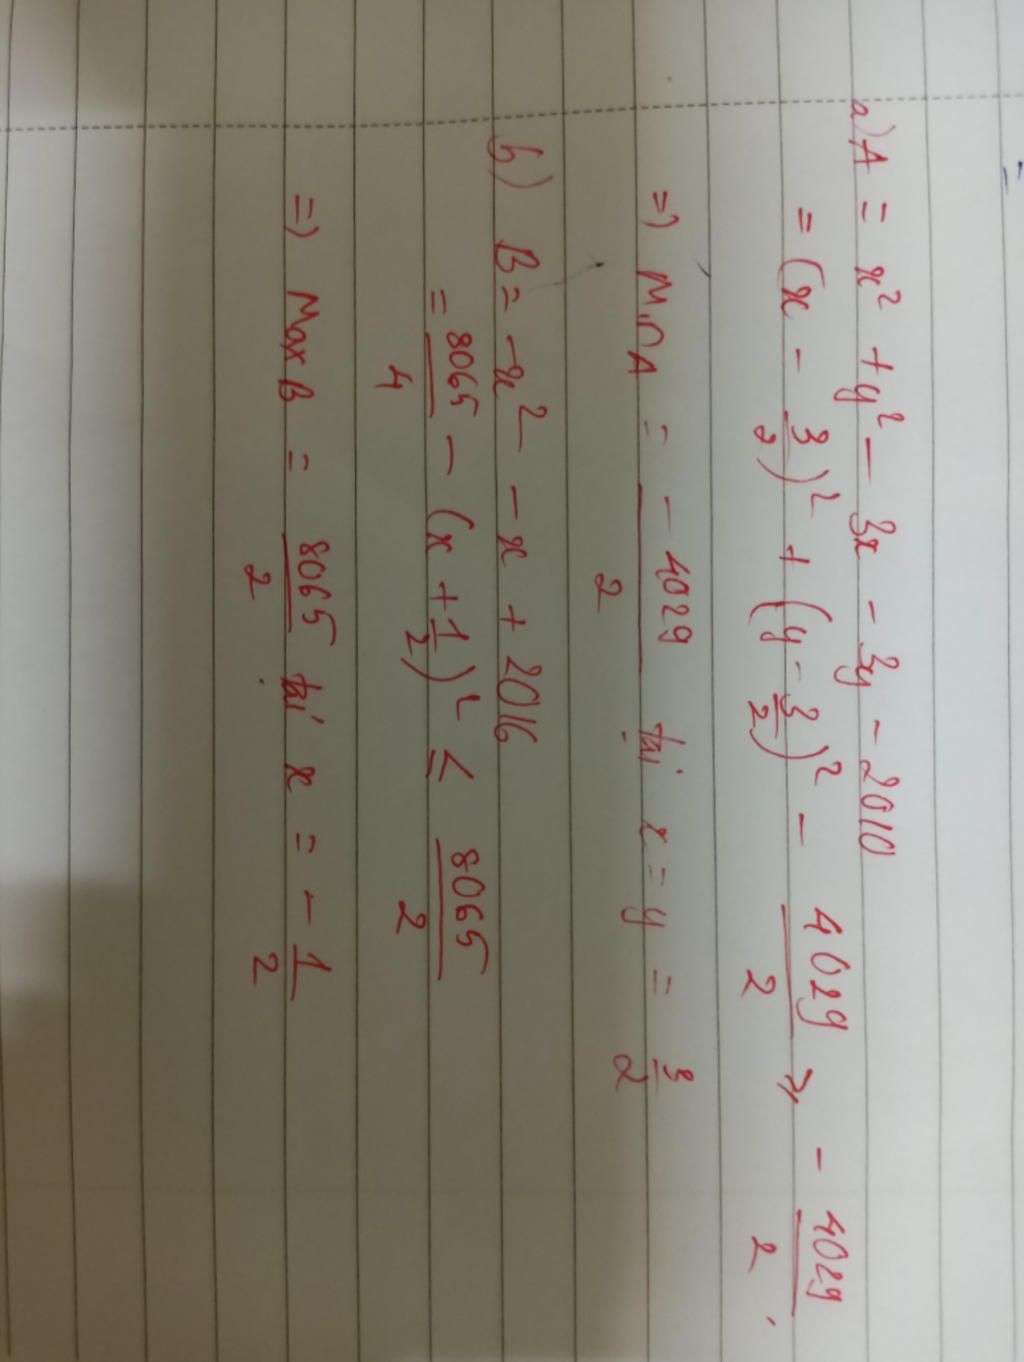 a) A = x² + y² - 3x - 3y - 2010
= (x - 3/2)² + (y - 3/2)² - 4029/2 ≥ - 4029/2.
=) Min A = - 4029/2 tại x = y = 3/2
b) B = - x² - x + 2016
= 8065/4 - (x + 1/2)² ≤ 8065/2
=) Max B = 8065/2 tại x = - 1/2